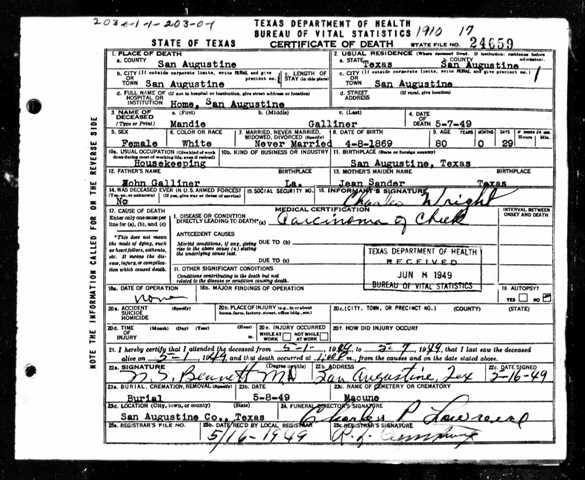 203-1-1-203-07
TEXAS DEPARTMENT OF HEALTH
BUREAU OF VITAL STATISTICS 1910 17
STATE OF TEXAS CERTIFICATE OF DEATH STATE FILE NO. 24659
1. PLACE OF DEATH 2. USUAL RESIDENCE (Where deceased lived. If institution: residence before admission)
a. COUNTY San Augustine a. STATE Texas b. COUNTY San Augustine
b. CITY (If outside corporate limits, write RURAL and give precinct no.) OR TOWN San Augustine c. LENGTH OF STAY (in this place) c. CITY (If outside corporate limits, write RURAL and give precinct no.) OR TOWN San Augustine 1
d. FULL NAME OF (If not in hospital or institution, give street address or location) HOSPITAL OR INSTITUTION Home, San Augustine d. STREET ADDRESS (If rural, give location)
3. NAME OF DECEASED (Type or Print) a. (First) Mandie b. (Middle) c. (Last) Galliner 4. DATE OF DEATH 5-7-49
5. SEX Female 6. COLOR OR RACE White 7. MARRIED, NEVER MARRIED, WIDOWED, DIVORCED (Specify) Never Married 8. DATE OF BIRTH 4-8-1869 9. AGE YEARS 80 MONTHS 0 DAYS 29
10a. USUAL OCCUPATION (Give kind of work done during most of working life, even if retired) Housekeeping 10b. KIND OF BUSINESS OR INDUSTRY 11. BIRTHPLACE (State or foreign country) San Augustine, Texas
12. FATHER'S NAME John Galliner BIRTHPLACE La. 13. MOTHER'S MAIDEN NAME Jean Sander BIRTHPLACE Texas
14. WAS DECEASED EVER IN U.S. ARMED FORCES? (Yes, no, or unknown) No (If yes, give war or dates of service) 15. SOCIAL SECURITY NO. 16. INFORMANT'S SIGNATURE Charles Wright
17. CAUSE OF DEATH Enter only one cause per line for (a), (b), and (c) MEDICAL CERTIFICATION INTERVAL BETWEEN ONSET AND DEATH
1. DISEASE OR CONDITION DIRECTLY LEADING TO DEATH (a) Carcinoma of Cheek
*This does not mean the mode of dying, such as heart failure, asthenia, etc. It means the disease, injury, or complication which caused death.
ANTECEDENT CAUSES
Morbid conditions, if any, giving rise to the above cause (a) stating the underlying cause last.
DUE TO (b)
DUE TO (c)
TEXAS DEPARTMENT OF HEALTH
RECEIVED
JUN 1949
BUREAU OF VITAL STATISTICS
11. OTHER SIGNIFICANT CONDITIONS
Conditions contributing to the death but not related to the disease or condition causing death.
18a. DATE OF OPERATION none 18b. MAJOR FINDINGS OF OPERATION 19. AUTOPSY? YES NO
20a. ACCIDENT SUICIDE HOMICIDE 20b. PLACE OF INJURY (e.g., in or about home, farm, factory, street, office bldg., etc.) 20c. (CITY, TOWN, OR PRECINCT NO.) (COUNTY) (STATE)
20d. TIME OF INJURY (Month) (Day) (Year) (Hour) 20e. INJURY OCCURRED WHILE AT WORK NOT WHILE AT WORK 20f. HOW DID INJURY OCCUR?
21. I hereby certify that I attended the deceased from 5-1- 1949, to 5-7 1949, that I last saw the deceased
alive on 5-1 1949, and that death occurred at m., from the causes and on the date stated above.
22a. SIGNATURE Bennett MD 22b. ADDRESS San Augustine, Tex 22c. DATE SIGNED 5-16-49
23a. BURIAL, CREMATION, REMOVAL (Specify) Burial 23b. DATE 5-8-49 23c. NAME OF CEMETERY OR CREMATORY Macune
23d. LOCATION (City, town, or county) (State) San Augustine Co., Texas 24. FUNERAL DIRECTOR'S SIGNATURE Charles
25a. REGISTRAR'S FILE NO. 25b. DATE REC'D BY LOCAL REGISTRAR 5/16-1949 25c. REGISTRAR'S SIGNATURE
NOTE THE INFORMATION CALLED FOR ON THE REVERSE SIDE